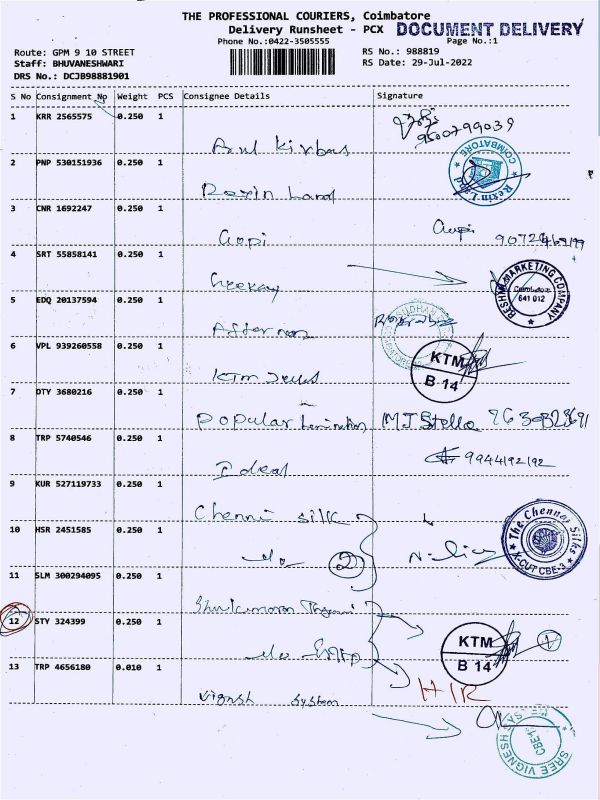 THE PROFESSIONAL COURIERS, Coimbatore
Delivery Runsheet - PCX DOCUMENT DELIVERY
Phone No.:0422-3505555 Page No.:1
Route: GPM 9 10 STREET RS No.: 988819
Staff: BHUVANESHWARI RS Date: 29-Jul-2022
DRS No.: DCJB98881901
S No Consignment No Weight PCS Consignee Details Signature
1 KRR 2565575 0.250 1
9500799039
COIMBATORE
2 PNP 530151936 0.250 1
Rexin Land
Rexin Land
3 CNR 1692247 0.250 1
Gopi Gopi
4 SRT 55858141 0.250 1
RESHMI MARKETING COMPANY
Coimbatore
641 012
5 EDQ 20137594 0.250 1
6 VPL 939260558 0.250 1
KTM
B 14
KTM
7 DTY 3680216 0.250 1
Popular MJ Stella
8 TRP 5740546 0.250 1
9944192192
Ideal
9 KUR 527119733 0.250 1
Chenni silk
The Chennai Silks
X-CUT CBE-3
10 HSR 2451585 0.250 1
do 2
11 SLM 300294095 0.250 1
12 STY 324399 0.250 1
KTM
B 14
do
13 TRP 4656180 0.010 1
HIR
Vignsh System
SREE VIGNESH
CBE